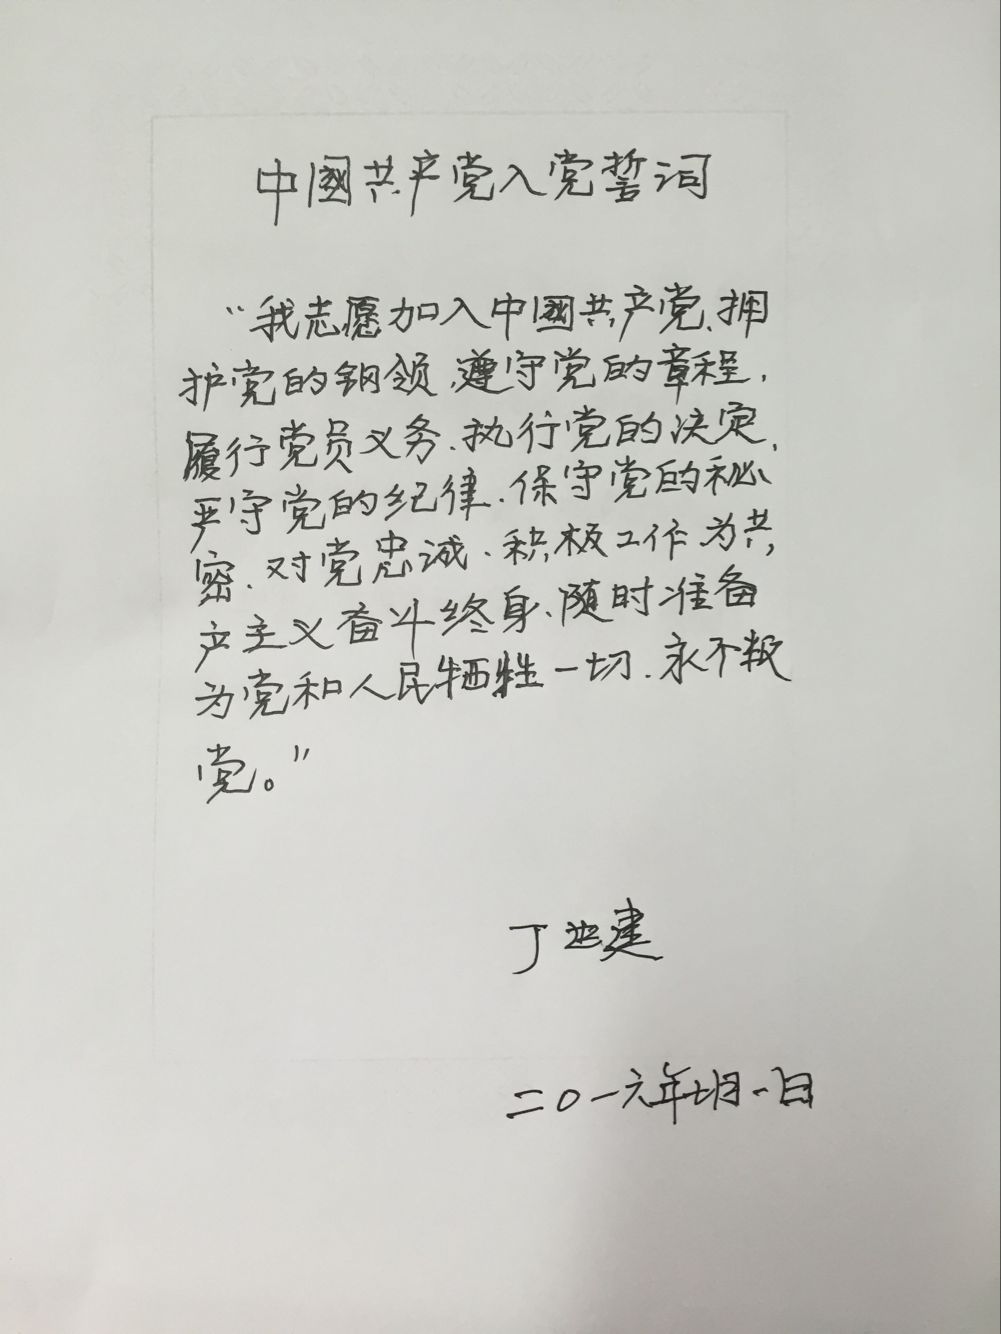 中國共产党入党誓词
“我志愿加入中國共产党、拥
护党的钢领、遵守党的章程，
履行党员义务、执行党的决定，
严守党的纪律、保守党的秘
密、对党忠诚、积极工作、为共
产主义奋斗终身、随时准备
为党和人民牺牲一切、永不叛
党。”
丁 建
二〇一六年七月一日